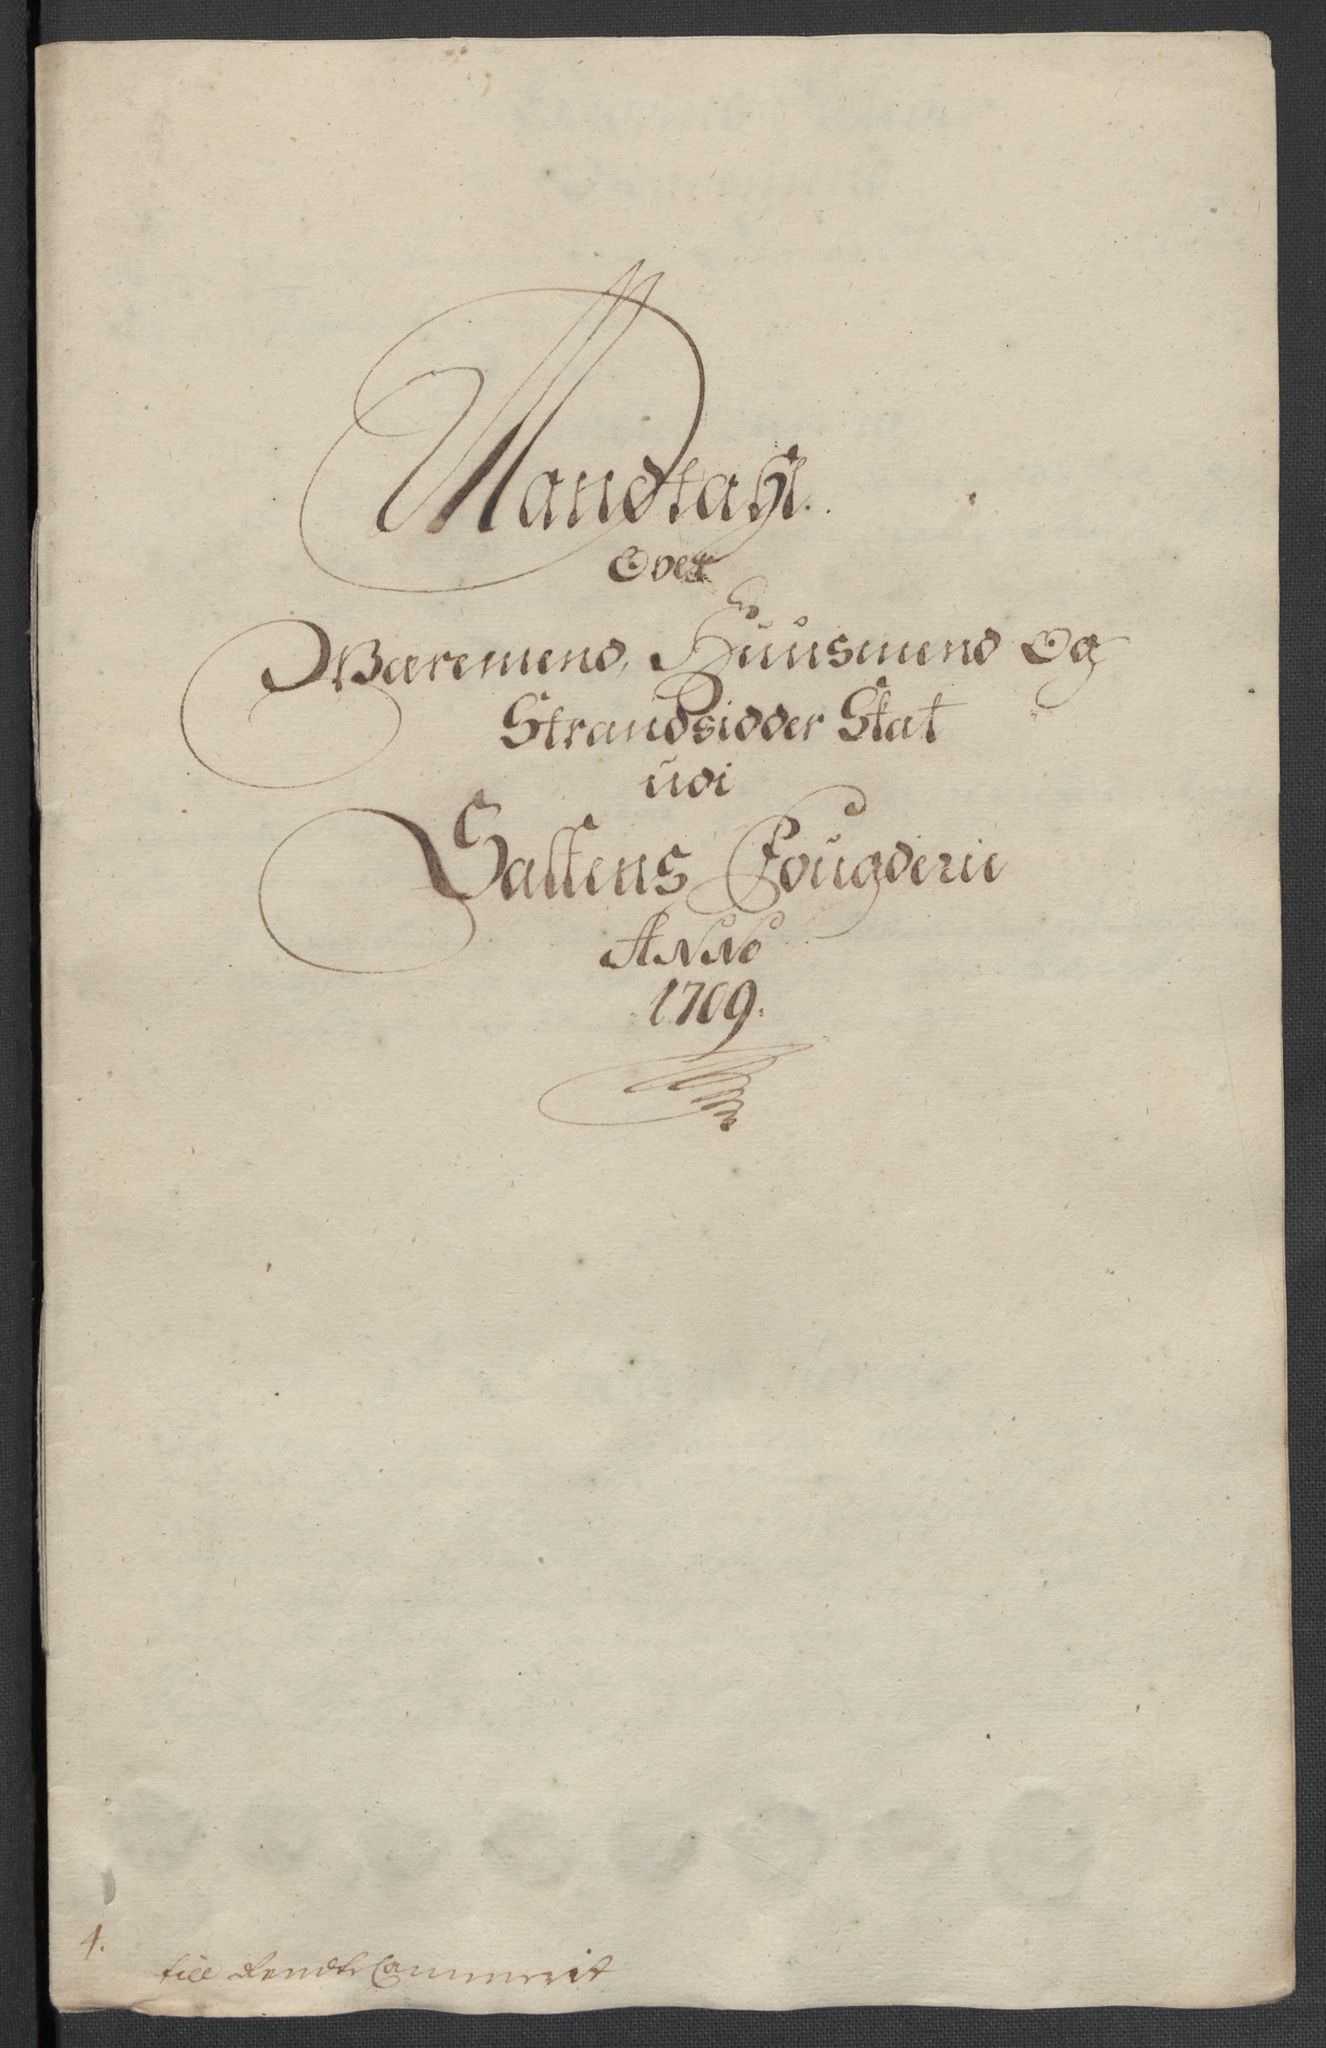 Mandtahl.
Over
Wæremend, Huusmend Og
Strandsidder Skat
udi
Saltens Fougderie
Anno
1709.
4.
till Rendte Cammerit